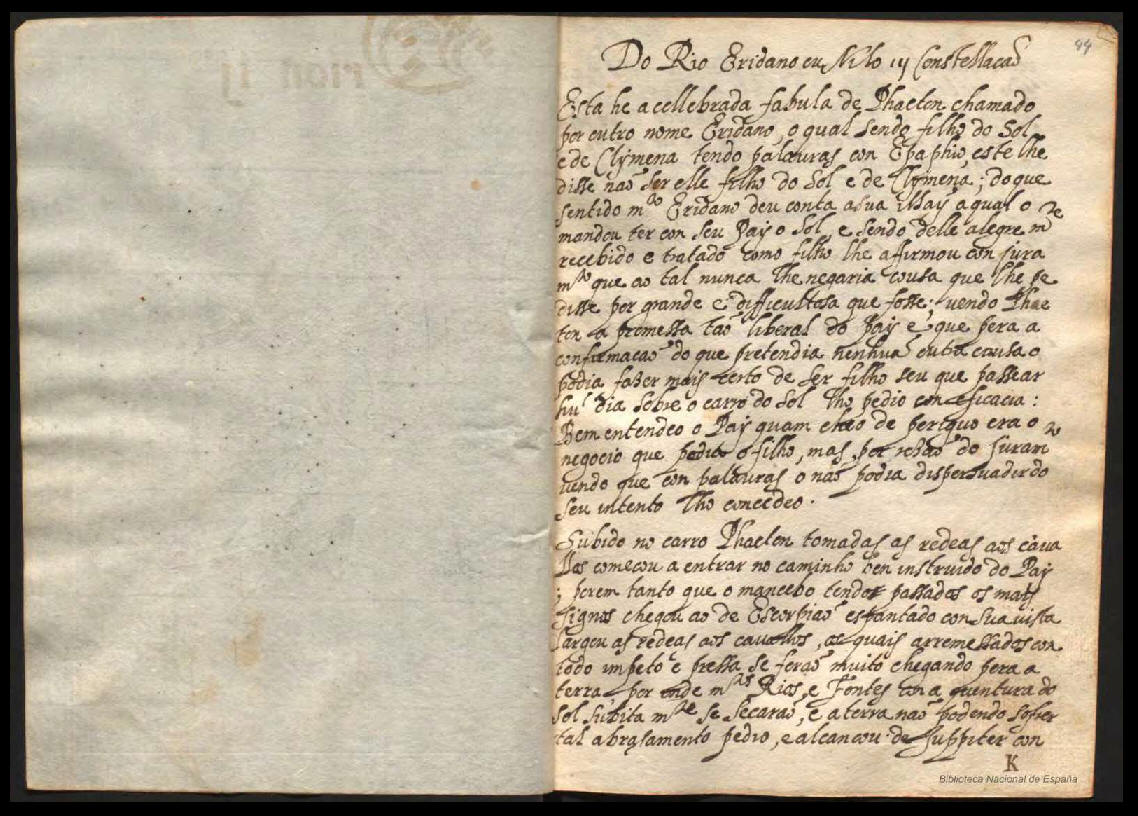 44
Do Rio Eridano ou Nilo iij Constellacaõ
Esta he a cellebrada fabula de Phaeton chamado
por outro nome Eridano, o qual sendo filho do Sol
e de Clymena tendo palauras con Epaphio, este lhe
disse naõ ser elle filho do Sol, e de Clymena; do que
sentido m.to Eridano deu conta a sua Maÿ a qual o
mandou ter con seu Paÿ o Sol, e sendo delle alegre m.te
recebido e tratado como filho lhe affirmou con jura
m.to que ao tal nunca lhe negaria cousa que lhe pe
disse por grande e difficultosa que fosse; vendo Phae
ton a promessa taõ liberal do Paÿ e que pera a
confirmacaõ do que pretendia nenhuã outra cousa o
podia fazer mais certo de ser filho seu que passear
hu~ dia sobre o carro do Sol lho pedio con eficacia:
Bem entendeo o Paÿ quam cheo de periguo era o
negocio que pedia o filho, mas por rezaõ do juram.to
vendo que con palauras o naõ podia dispersuadir do
seu intento lho concedeo.
Subido no carro Phaeton tomadas as redeas aos caua
llos começou a entrar no caminho ben instruido do Paÿ
; porem tanto que o mancebo tendo passados os mais
signos chegou ao de Escorpiaõ espantado con sua vista
largou as redeas aos cauallos, os quais arremessados con
todo impeto e pressa se foraõ muito chegando pera a
terra por onde m.tos Rios, e Fontes con a quentura do
Sol subita m.te se secaraõ, e a terra naõ podendo sofrer
tal abrasamento pedio, e alcancou de Juppiter con
K
Biblioteca Nacional de España